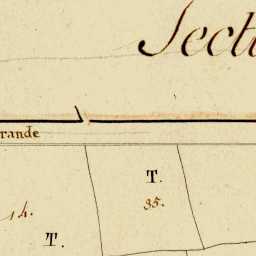 Secti
rande
T.
35.
14.
T.